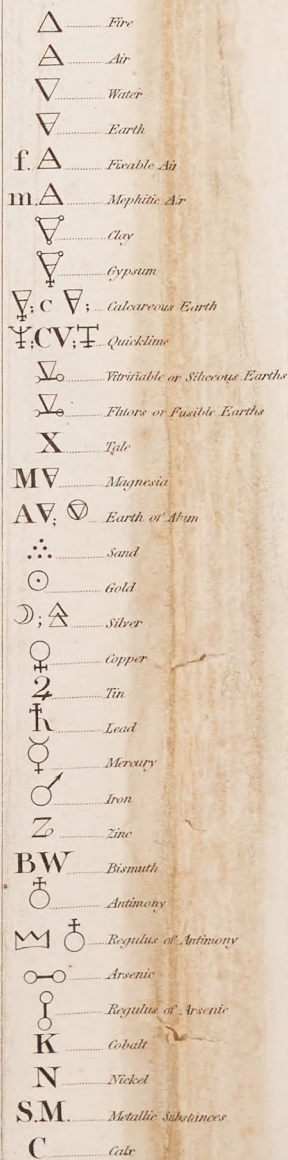 △ Fire
🜁 Air
▽ Water
🜃 Earth
f. 🜁 Fixable Air
m. 🜁 Mephitic Air
Clay
Gypsum
; c 🜃; Calcareous Earth
; C🜃; Quicklime
Vitrifiable or Siliceous Earths
Fluors or Fusible Earths
X Talc
M🜃 Magnesia
A🜃; Earth of Alum
Sand
☉ Gold
☽; Silver
♀ Copper
♃ Tin
♄ Lead
☿ Mercury
♂ Iron
Z Zinc
BW Bismuth
♁ Antimony
♁ Regulus of Antimony
Arsenic
Regulus of Arsenic
K Cobalt
N Nickel
S.M. Metallic Substances
C Calx